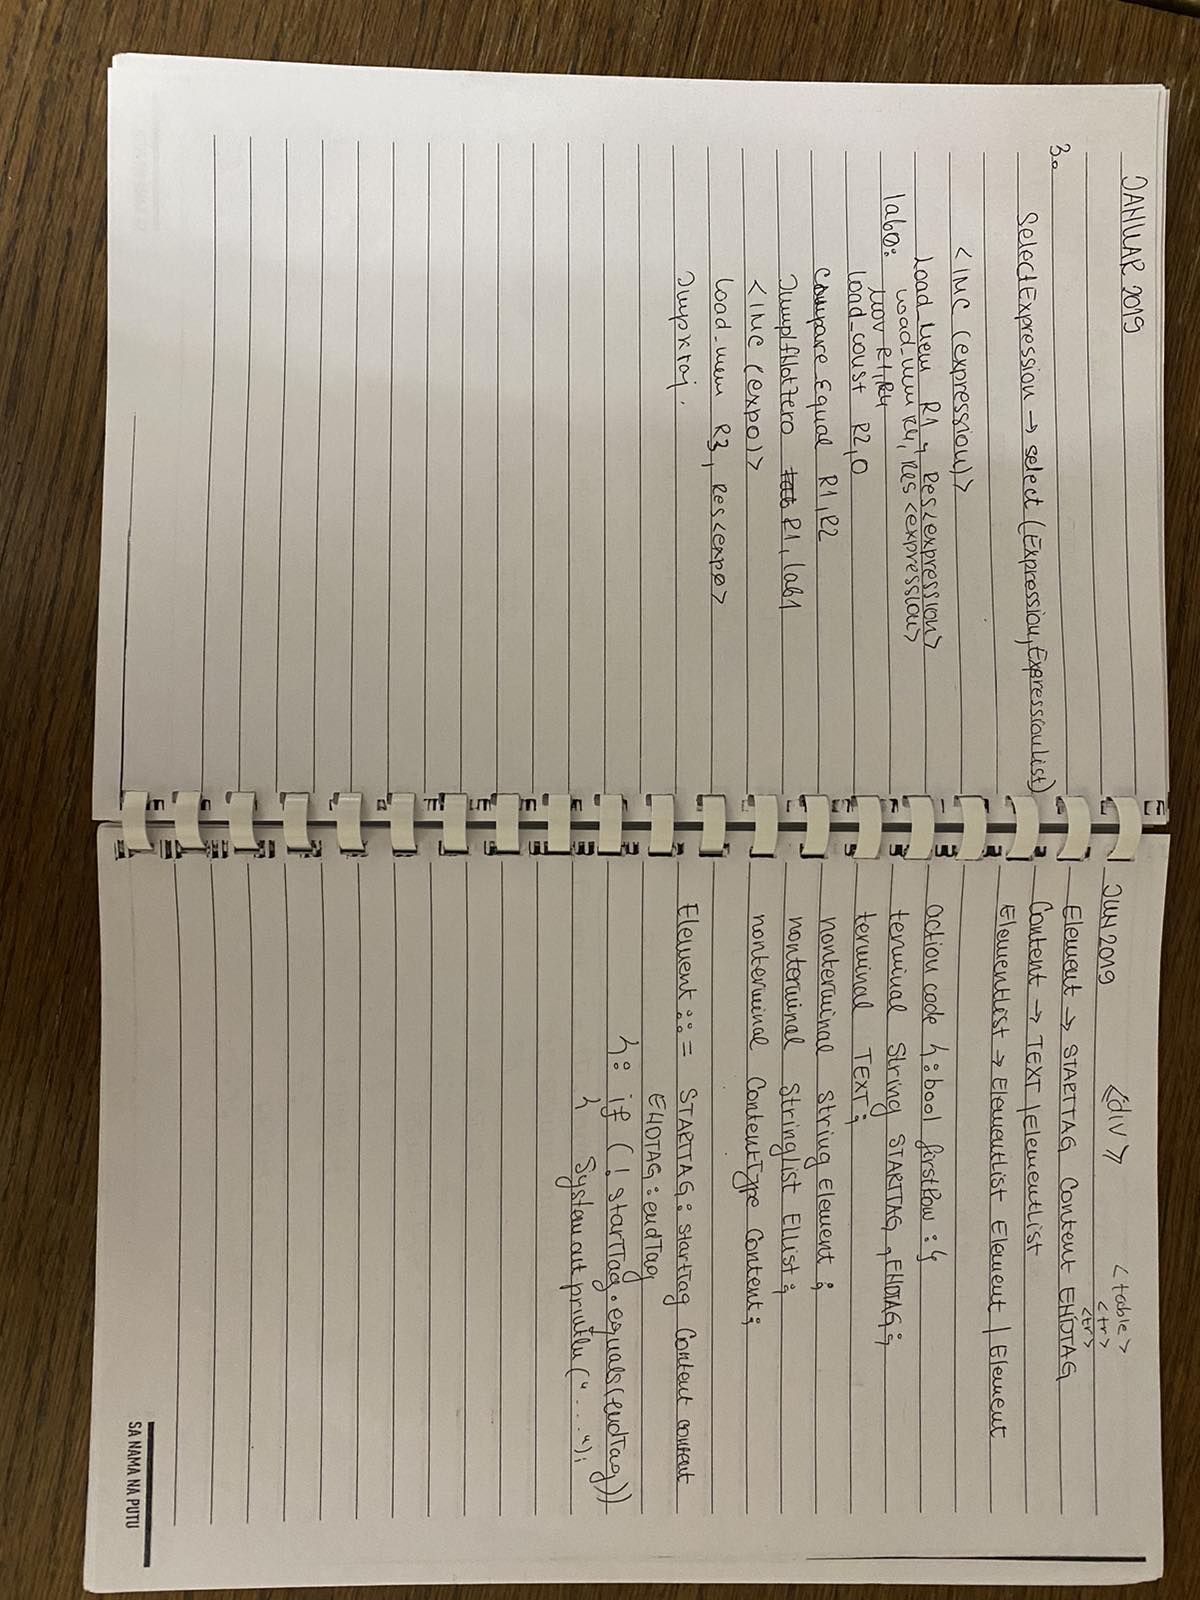 JANUAR 2019
3.
SelectExpression → select (Expression, ExpressionList)
<INC (expression)>
Load_mem R1, Res<expression>
Load_mem R4, Res<expression>
lab0: mov R1,R4
load_const R2,0
Compare Equal R1,R2
JumpIfNotZero R1, lab1
<INC (exp0)>
load_mem R3, Res<exp0>
Jmp kraj.
JUN 2019 <div> <table>
<tr>
<tr>
Element → STARTTAG Content ENDTAG
Content → TEXT | ElementList
ElementList → ElementList Element | Element
action code {: bool firstRow :}
terminal String STARTTAG, ENDTAG;
terminal TEXT;
nonterminal String Element;
nonterminal StringList Ellist;
nonterminal ContentType Content;
Element ::= STARTTAG: startTag Content content
ENDTAG: endTag
{: if (! startTag.equals(endTag))
{ System.out.println("....");
SA NAMA NA PUTU